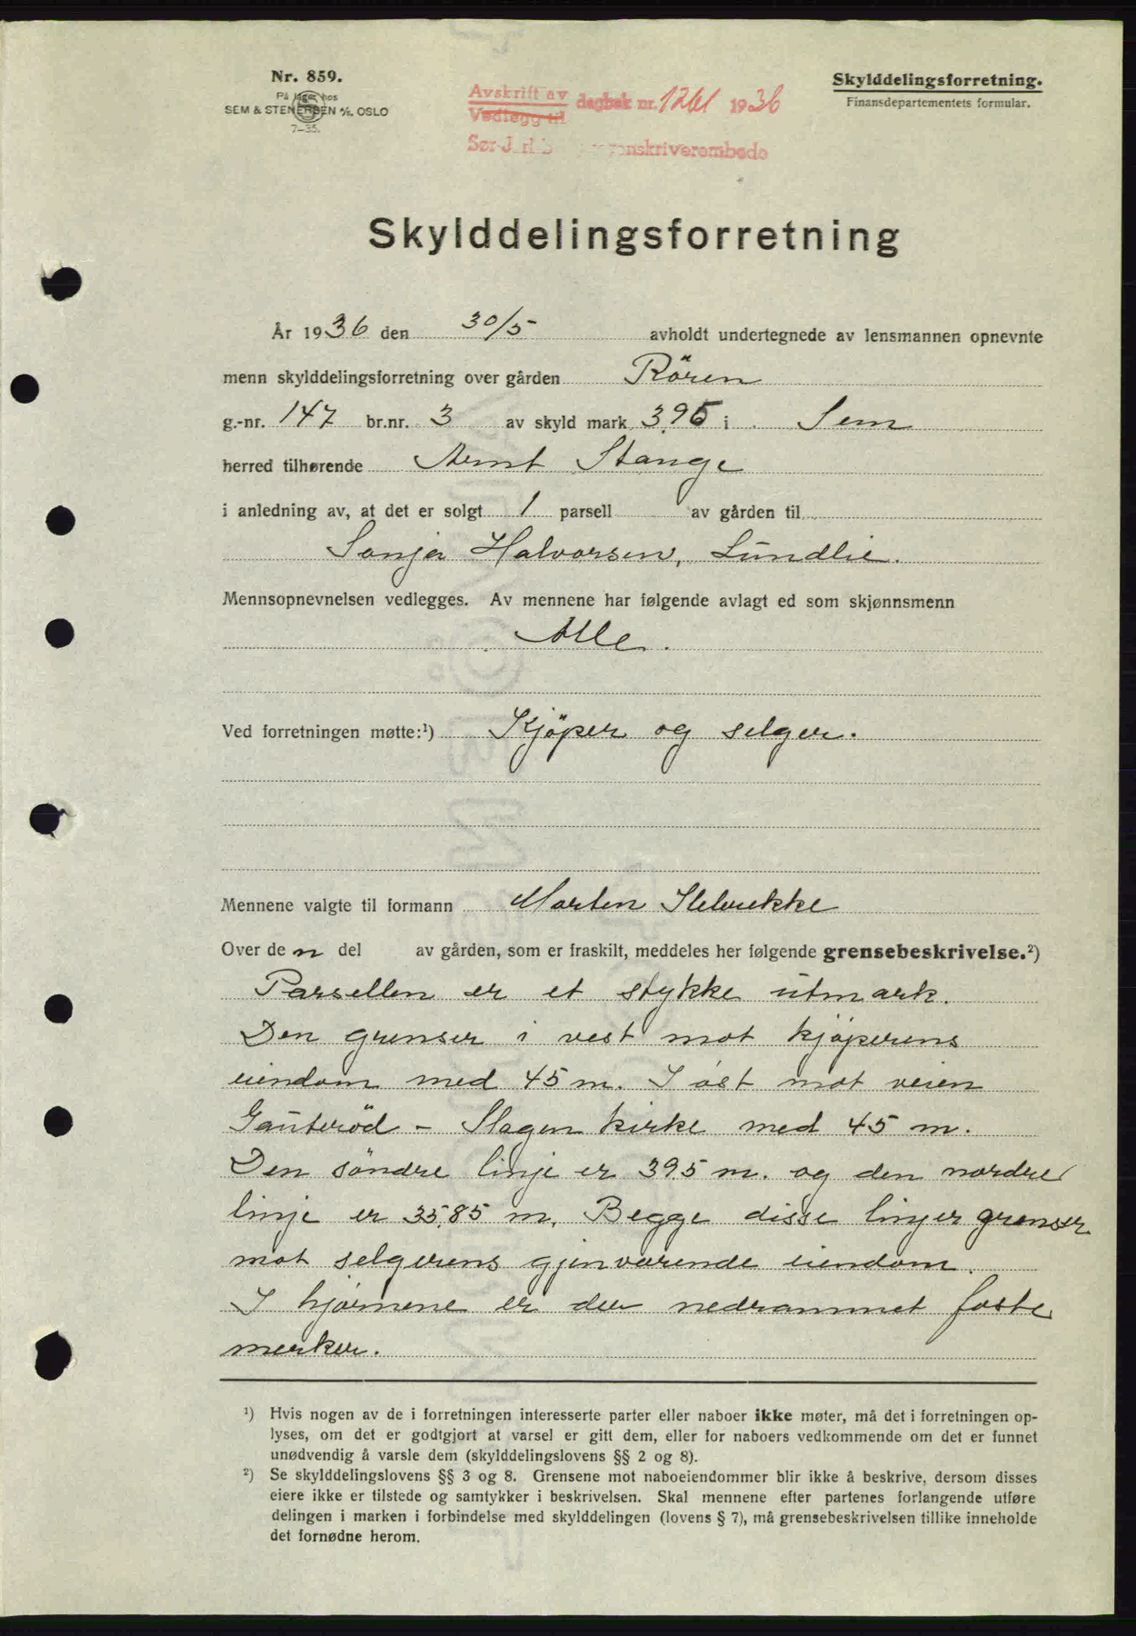 Nr. 859.
På lager hos
SEM & STENERSEN A/S. OSLO
7-35.
Avskrift av
Vedlegg til
dagbok nr. 1261 1936
Sør-J
enskriverembede
Skylddelingsforretning.
Finansdepartementets formular.
Skylddelingsforretning
År 1936 den 30/5 avholdt undertegnede av lensmannen opnevnte
menn skylddelingsforretning over gården Rören
g.-nr. 147 br.nr. 3 av skyld mark 3.95 i Sem
herred tilhørende Arnt Stange
i anledning av, at det er solgt 1 parsell av gården til
Sonja Halvorsen, Lundlie.
Mennsopnevnelsen vedlegges. Av mennene har følgende avlagt ed som skjønnsmenn
Alle.
Ved forretningen møtte:¹) Kjöper og selger.
Mennene valgte til formann Morten
Over den del av gården, som er fraskilt, meddeles her følgende grensebeskrivelse.²)
Parsellen er et stykke utmark.
Den grenser i vest mot kjöperens
eiendom med 45 m. I øst mot veien
Gauteröd - Slagen kirke med 45 m.
Den söndre linje er 39.5 m. og den nordre
linje er 35.85 m. Begge disse linjer grenser
mot selgerens gjenværende eiendom.
I hjörnene er der nedrammet faste
merker.
¹) Hvis nogen av de i forretningen interesserte parter eller naboer ikke møter, må det i forretningen op-
lyses, om det er godtgjort at varsel er gitt dem, eller for naboers vedkommende om det er funnet
unødvendig å varsle dem (skylddelingslovens §§ 2 og 8).
²) Se skylddelingslovens §§ 3 og 8. Grensene mot naboeiendommer blir ikke å beskrive, dersom disses
eiere ikke er tilstede og samtykker i beskrivelsen. Skal mennene efter partenes forlangende utføre
delingen i marken i forbindelse med skylddelingen (lovens § 7), må grensebeskrivelsen tillike inneholde
det fornødne herom.